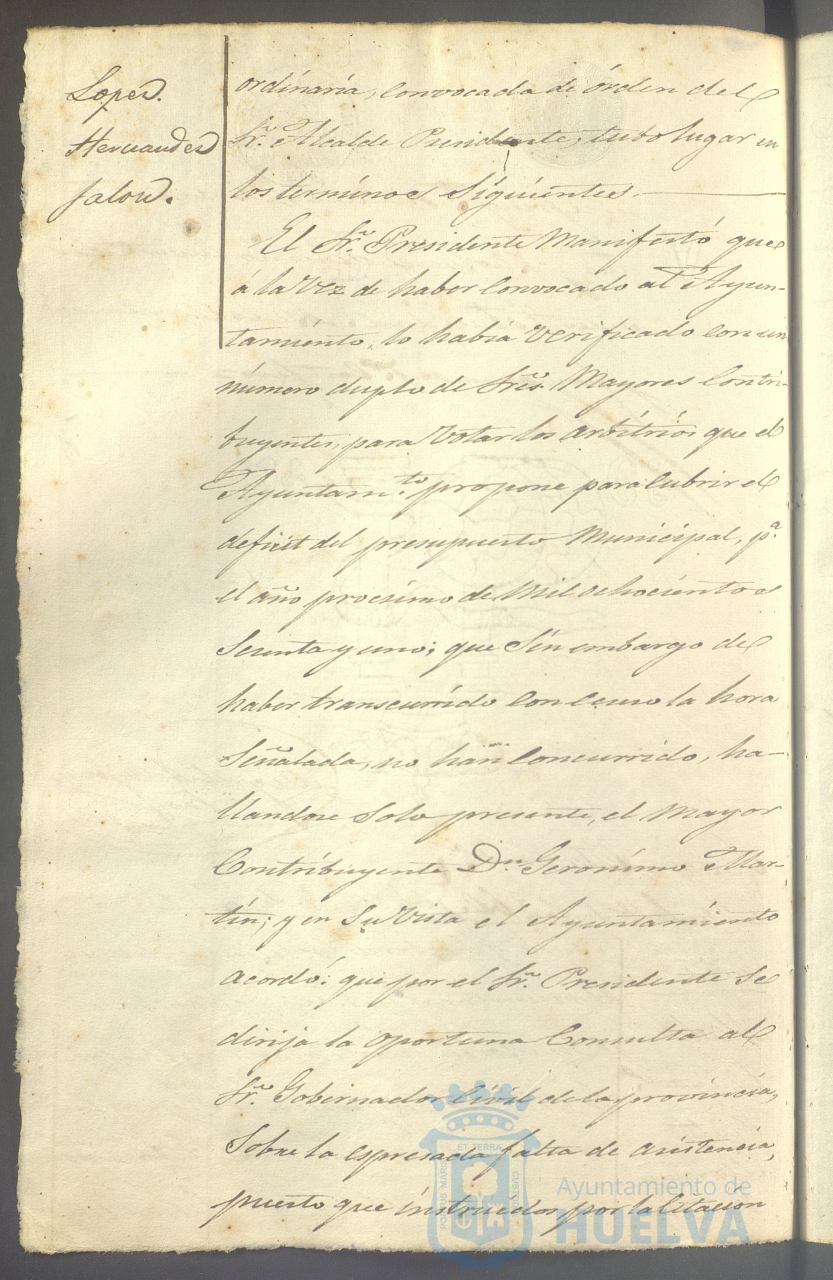 Lopez.
Hernandez
Jalon.
ordinaria, convocada de órden del
Sr. Alcalde Presidente, tubo lugar en
los terminos siguientes
El Sr. Presidente Manifestó que
á la vez de haber convocado al Ayun-
tamiento, lo había verificado con un
número duplo de Sres. Mayores Contri-
buyentes, para votar los arbitrios que el
Ayuntamto. propone para cubrir el
deficit del presupuesto Municipal, pa.
el año procsimo de Mil ochocientos
sesenta y uno; que sin embargo de
haber transcurrido con ceso la hora
Señalada, no han concurrido, ha-
llandose solo presente, el mayor
Contribuyente Dn. Geronimo Mar-
tin; y en su vista el Ayuntamiento
acordó: que por el Sr. Presidente se
dirija la oportuna Consulta al
Sr. Gobernador Civil de la provincia,
Sobre la espresada falta de asistencia,
puesto que instruidos por la citación
PORTUS MARIS ET TERRÆ CUSTODIA
Ayuntamiento de
HUELVA